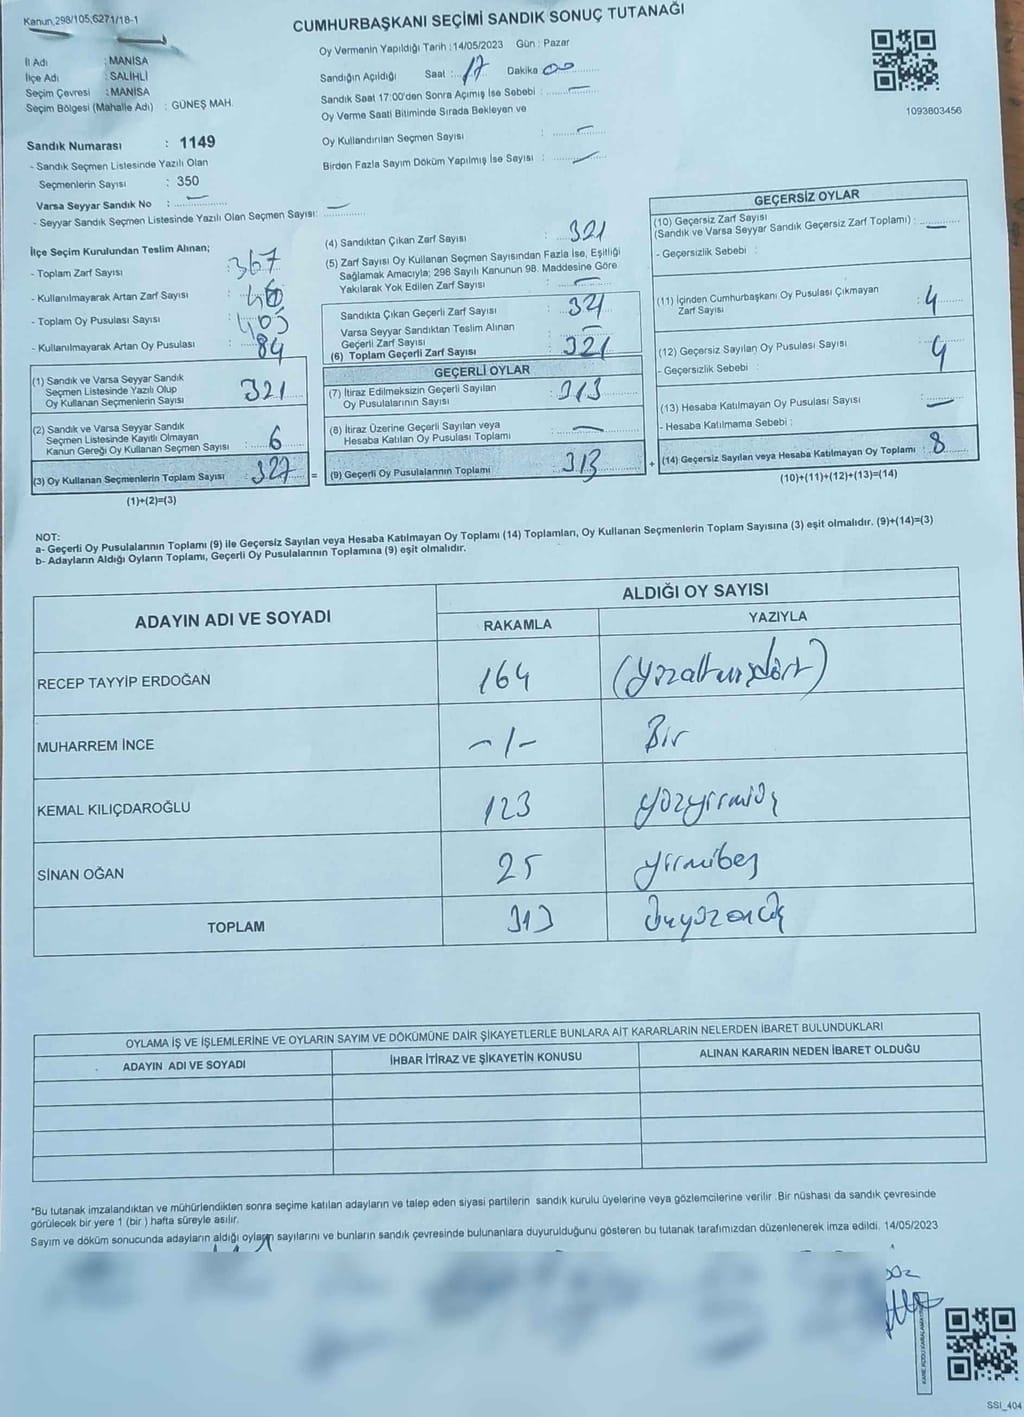 Kanun,298/105,6271/18-1
CUMHURBAŞKANI SEÇİMİ SANDIK SONUÇ TUTANAĞI
İl Adı : MANİSA
İlçe Adı : SALİHLİ
Seçim Çevresi : MANİSA
Seçim Bölgesi (Mahalle Adı) : GÜNEŞ MAH.
Oy Vermenin Yapıldığı Tarih :14/05/2023 Gün : Pazar
Sandığın Açıldığı Saat : 17 Dakika 00
Sandık Saat 17:00'den Sonra Açımış İse Sebebi : —
Oy Verme Saati Bitiminde Sırada Bekleyen ve
Oy Kullandırılan Seçmen Sayısı : —
Birden Fazla Sayım Döküm Yapılmış İse Sayısı : —
1093803456
Sandık Numarası : 1149
- Sandık Seçmen Listesinde Yazılı Olan
Seçmenlerin Sayısı : 350
Varsa Seyyar Sandık No : —
- Seyyar Sandık Seçmen Listesinde Yazılı Olan Seçmen Sayısı: —
İlçe Seçim Kurulundan Teslim Alınan;
- Toplam Zarf Sayısı : 367
- Kullanılmayarak Artan Zarf Sayısı :
- Toplam Oy Pusulası Sayısı :
- Kullanılmayarak Artan Oy Pusulası : 84
(1) Sandık ve Varsa Seyyar Sandık
Seçmen Listesinde Yazılı Olup
Oy Kullanan Seçmenlerin Sayısı : 321
(2) Sandık ve Varsa Seyyar Sandık
Seçmen Listesinde Kayıtlı Olmayan
Kanun Gereği Oy Kullanan Seçmen Sayısı : 6
(3) Oy Kullanan Seçmenlerin Toplam Sayısı : 327 =
(1)+(2)=(3)
(4) Sandıktan Çıkan Zarf Sayısı : 321
(5) Zarf Sayısı Oy Kullanan Seçmen Sayısından Fazla İse, Eşitliği
Sağlamak Amacıyla; 298 Sayılı Kanunun 98. Maddesine Göre
Yakılarak Yok Edilen Zarf Sayısı : —
Sandıkta Çıkan Geçerli Zarf Sayısı : 321
Varsa Seyyar Sandıktan Teslim Alınan
Geçerli Zarf Sayısı : —
(6) Toplam Geçerli Zarf Sayısı : 321
GEÇERLİ OYLAR
(7) İtiraz Edilmeksizin Geçerli Sayılan
Oy Pusulalarının Sayısı : 313
(8) İtiraz Üzerine Geçerli Sayılan ve
Hesaba Katılan Oy Pusulası Toplamı : —
(9) Geçerli Oy Pusulalarının Toplamı : 313 +
GEÇERSİZ OYLAR
(10) Geçersiz Zarf Sayısı
(Sandık ve Varsa Seyyar Sandık Geçersiz Zarf Toplamı) : —
- Geçersizlik Sebebi :
(11) İçinden Cumhurbaşkanı Oy Pusulası Çıkmayan
Zarf Sayısı : 4
(12) Geçersiz Sayılan Oy Pusulası Sayısı : 4
- Geçersizlik Sebebi :
(13) Hesaba Katılmayan Oy Pusulası Sayısı : —
- Hesaba Katılmama Sebebi :
(14) Geçersiz Sayılan veya Hesaba Katılmayan Oy Toplamı : 8
(10)+(11)+(12)+(13)=(14)
NOT:
a- Geçerli Oy Pusulalarının Toplamı (9) ile Geçersiz Sayılan veya Hesaba Katılmayan Oy Toplamı (14) Toplamları, Oy Kullanan Seçmenlerin Toplam Sayısına (3) eşit olmalıdır. (9)+(14)=(3)
b- Adayların Aldığı Oyların Toplamı, Geçerli Oy Pusulalarının Toplamına (9) eşit olmalıdır.
ADAYIN ADI VE SOYADI
ALDIĞI OY SAYISI
RAKAMLA YAZIYLA
RECEP TAYYİP ERDOĞAN 164 (yüzaltmışdört)
MUHARREM İNCE -1- Bir
KEMAL KILIÇDAROĞLU 123 yüzyirmiüç
SİNAN OĞAN 25 yirmibeş
TOPLAM 313 üçyüzonüç
OYLAMA İŞ VE İŞLEMLERİNE VE OYLARIN SAYIM VE DÖKÜMÜNE DAİR ŞİKAYETLERLE BUNLARA AİT KARARLARIN NELERDEN İBARET BULUNDUKLARI
ADAYIN ADI VE SOYADI İHBAR İTİRAZ VE ŞİKAYETİN KONUSU ALINAN KARARIN NEDEN İBARET OLDUĞU
*Bu tutanak imzalandıktan ve mühürlendikten sonra seçime katılan adayların ve talep eden siyasi partilerin sandık kurulu üyelerine veya gözlemcilerine verilir .Bir nüshası da sandık çevresinde
görülecek bir yere 1 (bir ) hafta süreyle asılır.
Sayım ve döküm sonucunda adayların aldığı oyların sayılarını ve bunların sandık çevresinde bulunanlara duyurulduğunu gösteren bu tutanak tarafımızdan düzenlenerek imza edildi. 14/05/2023
SSI_404